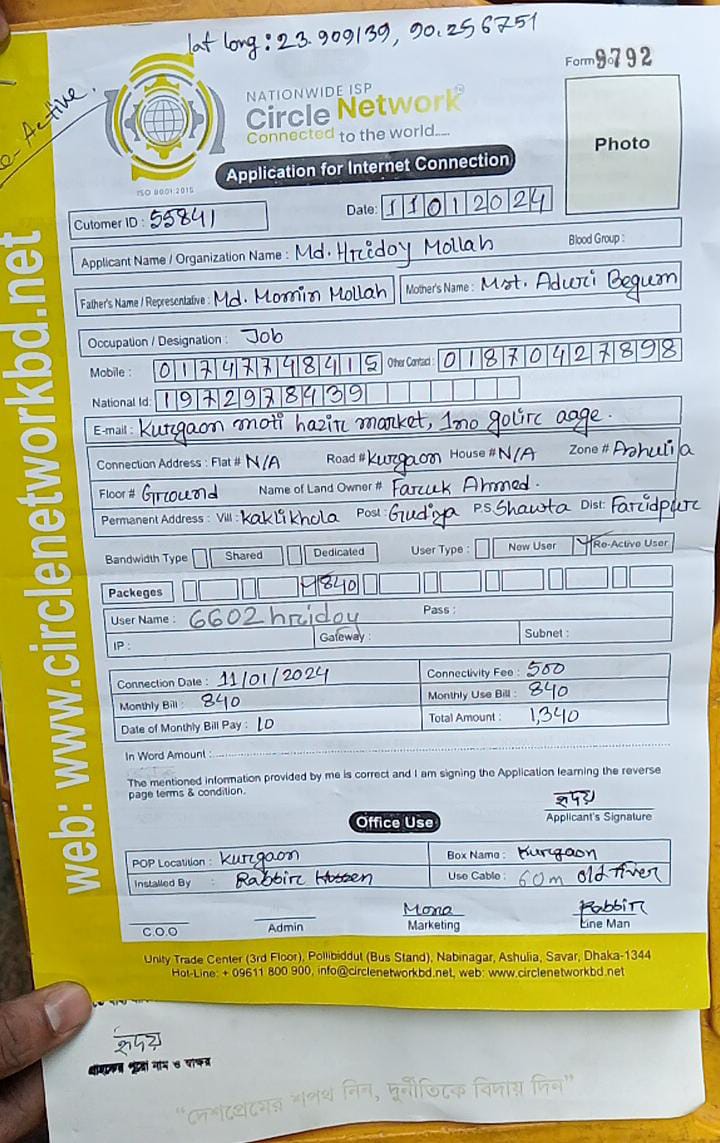 lat long: 23.909139, 90.256751
Re-Active.
Form 9792
NATIONWIDE ISP
Circle Network
Connected to the world....
ISO 9001:2015
Photo
Application for Internet Connection
Cutomer ID : 55841
Date: 11012024
Applicant Name / Organization Name : Md. Hridoy Mollah
Blood Group :
Father's Name / Representative : Md. Momin Mollah
Mother's Name : Mst. Aduri Begum
Occupation / Designation : Job
Mobile : 01747748415
Other Contact : 01870427898
National Id: 1972978439
E-mail : Kurgaon moti hazir market, 1no golir aage.
Connection Address : Flat # N/A Road # Kurgaon House # N/A Zone # Ashulia
Floor # Ground Name of Land Owner # Faruk Ahmed.
Permanent Address : Vill : Kaklikhola Post : Gudiya P.S Shawta Dist: Faridpur
Bandwidth Type Shared Dedicated User Type : New User Re-Active User
Packeges 840
User Name : 6602hridoy Pass :
IP : Gateway : Subnet :
Connection Date : 11/01/2024 Connectivity Fee : 500
Monthly Bill : 840 Monthly Use Bill : 840
Date of Monthly Bill Pay : 10 Total Amount : 1,340
In Word Amount :
The mentioned information provided by me is correct and I am signing the Application learning the reverse
page terms & condition.
হৃদয়
Applicant's Signature
Office Use
POP Locatition : Kurgaon Box Name : Kurgaon
Installed By : Rabbir Hossen Use Cable : 60m old fiver
Mona Rabbir
C.O.O Admin Marketing Line Man
Unity Trade Center (3rd Floor), Pollibiddut (Bus Stand), Nabinagar, Ashulia, Savar, Dhaka-1344
Hot-Line: + 09611 800 900, info@circlenetworkbd.net, web: www.circlenetworkbd.net
web: www.circlenetworkbd.net
হৃদয়
"দেশপ্রেমের শপথ নিন, দুর্নীতিকে বিদায় দিন"